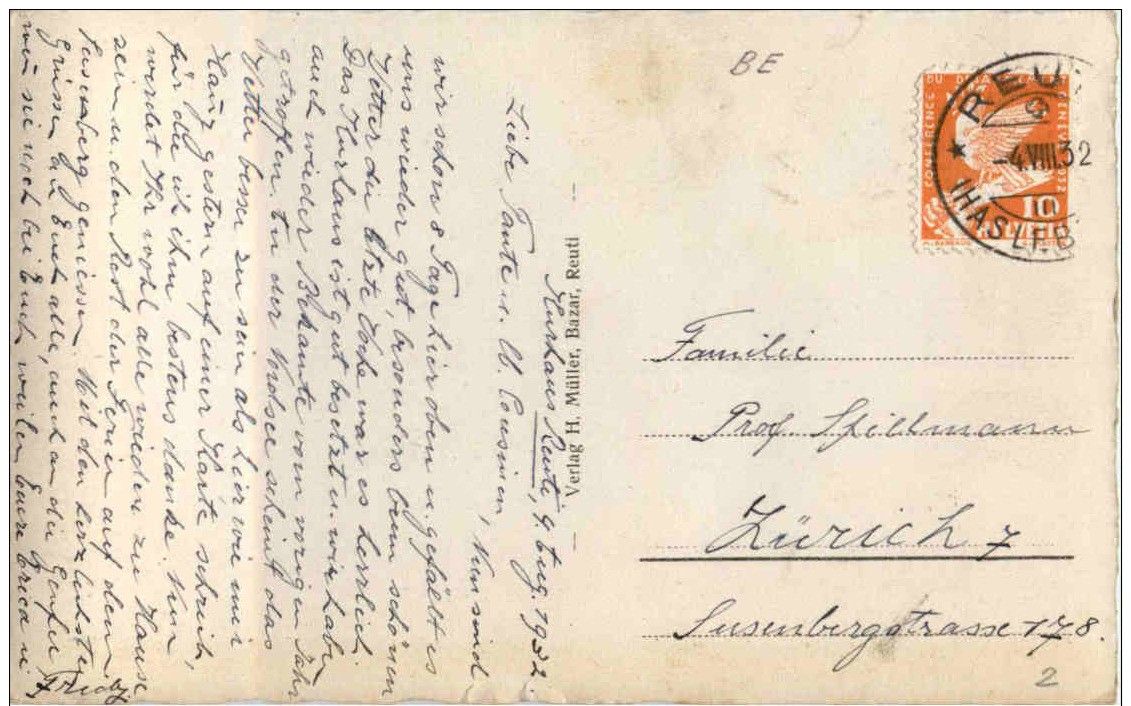 Kurhaus Reuti, 9. Aug. 1932.
Liebe Tante u. Cousinen, Nun sind
wir schon 8 Tage hier oben u. gefällt es
uns wieder gut, besonders beim schönen
Wetter die letzte Woche war es herrlich.
Das Kurhaus ist gut besetzt u. wir haben
auch wieder Bekannte vom vorigen Jahr
getroffen. An der Nordsee scheint das
Wetter besser zu sein als hier wie mir
Hans gestern auf einer Karte schrieb,
für die ich ihm bestens danke. Nun
werdet Ihr wohl alle wieder zu Hause
sein u. den Rest der Ferien auf dem
Susenberg geniessen. Mit den herzlichsten
Grüssen an Euch alle, auch an die Genfer
wenn sie noch bei Euch weilen Eure Erica u.
Fredy
Verlag H. Müller, Bazar, Reuti
BE
CONFERENCE DU DESARMEMENT GENEVE 1932
10
HELVETIA
REUTI
-4.VIII.32
(HASLEB
Familie
Prof. Spillmann
Zürich 7
Susenbergstrasse 178.
2